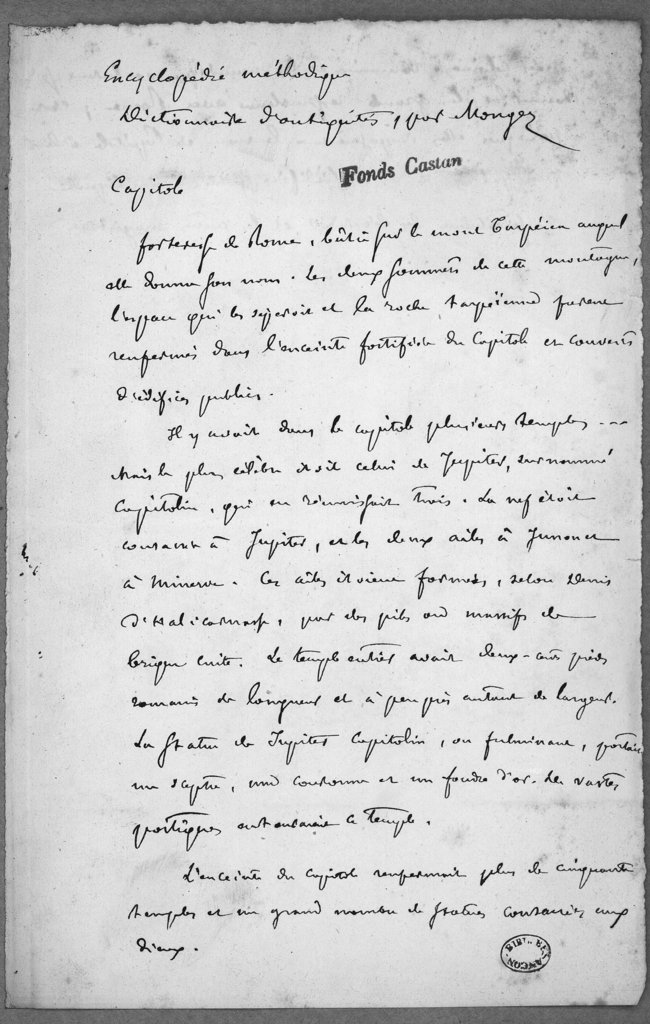 Encyclopédie méthodique
Dictionnaire d'antiquités, par Mongez
Fonds Castan
Capitole
forteresse de Rome, bâtie sur le mont Tarpéien auquel
elle donna son nom. Les deux sommets de cette montagne,
l'espace qui les séparoit et la roche tarpéienne furent
renfermés dans l'enceinte fortifiée du Capitole et couverts
d'édifices publics.
Il y avait dans le capitole plusieurs temples ---
Mais le plus célèbre étoit celui de Jupiter, surnommé
Capitolin, qui en réunissait trois. La nef étoit
consacrée à Jupiter, et les deux ailes à Junon et
à Minerve. Ces ailes étoient formées, selon Denis
d'Halicarnasse, par des piles ou massifs de
brique cuite. Le temple entier avait deux-cents pieds
romains de longueur et à peu près autant de largeur.
La statue de Jupiter Capitolin, ou fulminant, portait
un sceptre, une couronne et un foudre d'or. De vastes
portiques entouraient ce temple.
L'enceinte du capitole renfermait plus de cinquante
temples et un grand nombre de statues consacrées aux
dieux.
BESANÇON